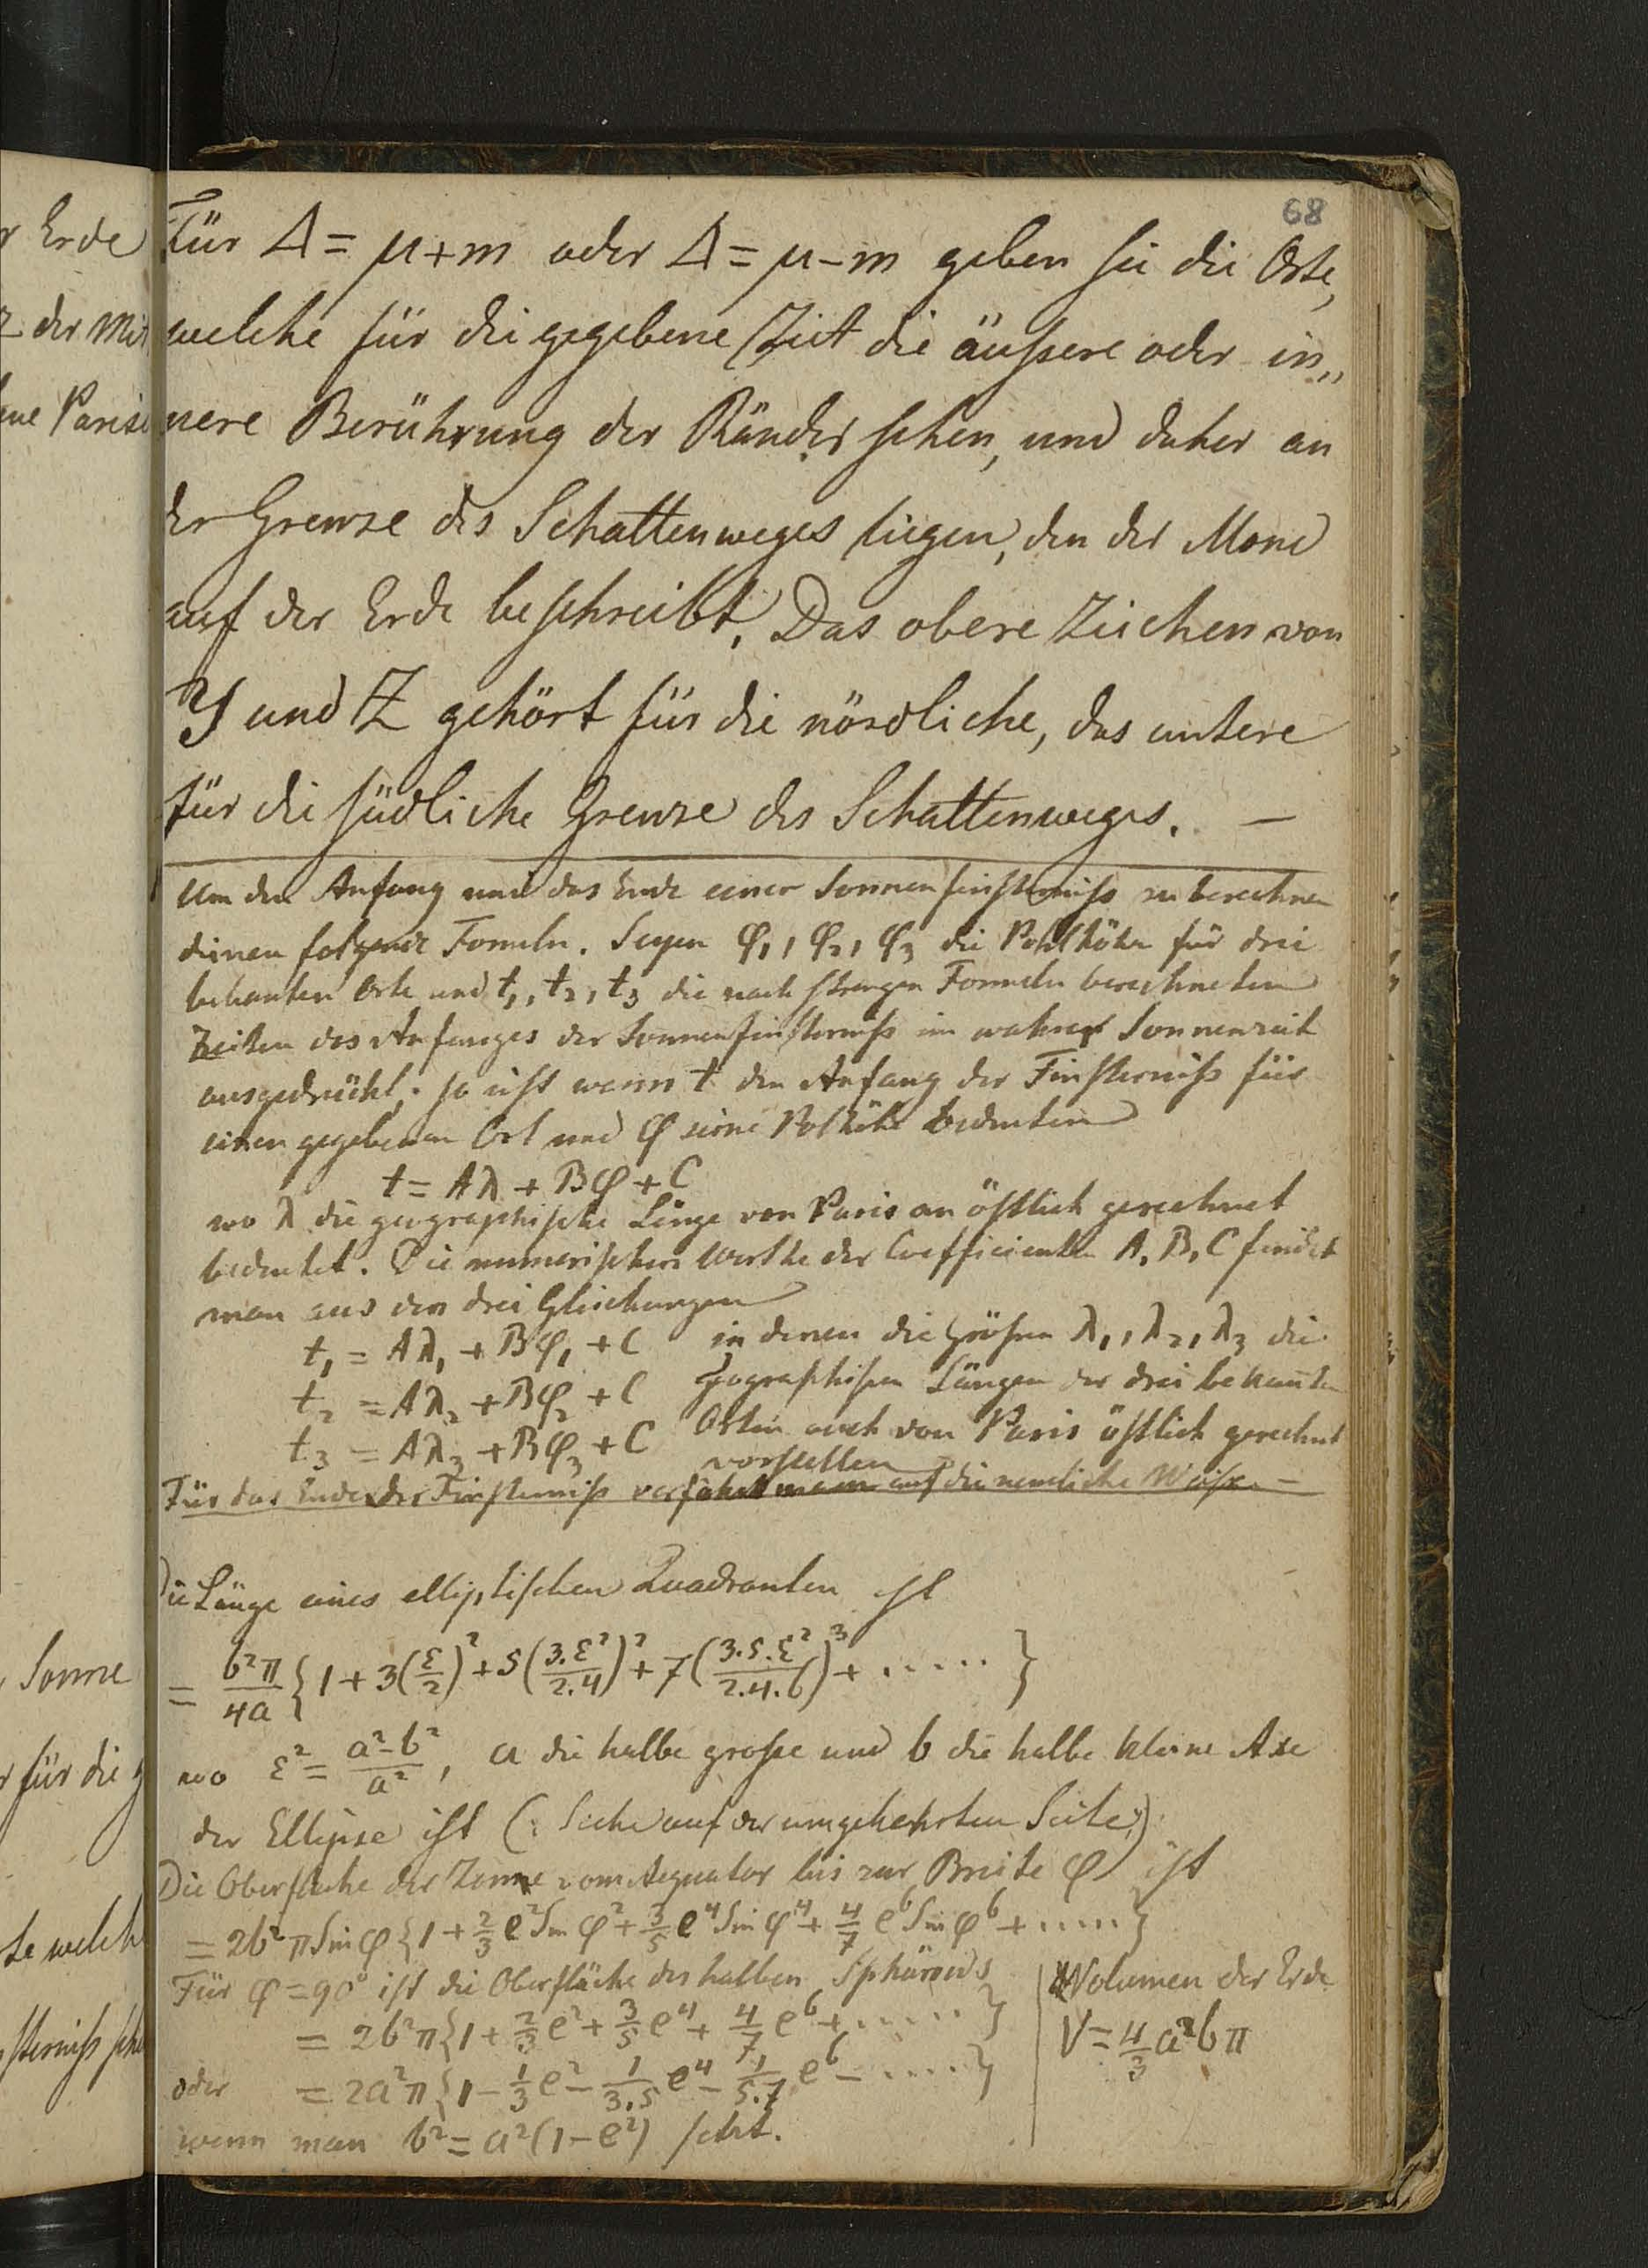 r Erde
der Mit
Paris
Sonne
für die
te welch
68
Für Δ = μ+m oder Δ = μ-m geben sie die Orte,
welche für die gegebene Zeit die äußere oder in„
nere Berührung der Ränder sehen, und daher an
der Grenze des Schattenweges liegen, den der Mond
auf der Erde beschreibt. Das obere Zeichen von
Y und Z gehört für die nördliche, das untere
für die südliche Grenze des Schattenweges. —
Um den Anfang und das Ende einer Sonnenfinsterniß zu berechnen
dienen folgende Formeln. Seyen φ₁, φ₂, φ₃ die Polhöhe für drei
bekanten Orte und t₁, t₂, t₃ die nach strengen Formeln berechneten
Zeiten des Anfanges der Sonnenfinsterniß in wahrer Sonnenzeit
ausgedrückt; so ist wenn t den Anfang der Finsterniß für
einen gegebenen Ort und φ seine Polhöhe bedeuten
t = Aλ + Bφ + C
wo λ die geographische Länge von Paris an östlich gerechnet
bedeutet. Die numerischen Werthe der Coefficienten A, B, C findet
man aus den drei Gleichungen
t₁ = Aλ₁ + Bφ₁ + C in denen die Größen λ₁, λ₂, λ₃ die
t₂ = Aλ₂ + Bφ₂ + C geographischen Längen der drei bekannten
t₃ = Aλ₃ + Bφ₃ + C Orten auch von Paris östlich gerechnet
vorstellen
Für das Ende der Finsterniß verfährt man auf die nemliche Weise. —
Die Länge eines elliptischen Quadranten ist
= b²π/4a {1 + 3(ε/2)² + 5(3.ε²/2.4)² + 7(3.5.ε²/2.4.6)³ + ..... }
wo ε² = a²-b²/a², a die halbe große und b die halbe kleine Axe
der Ellipse ist (: Siehe auf der umgekehrten Seite :)
Die Oberfläche der Zone vom Aequator bis zur Breite φ ist
= 2b²π Sin φ {1 + 2/3 e² Sin φ² + 3/5 e⁴ Sin φ⁴ + 4/7 e⁶ Sin φ⁶ + ..... }
Für φ = 90° ist die Oberfläche des halben Sphäroids
= 2b²π {1 + 2/3 e² + 3/5 e⁴ + 4/7 e⁶ + ..... }
oder = 2a²π {1 - 1/3 e² - 1/3.5 e⁴ - 1/5.7 e⁶ - ..... }
wenn man b² = a²(1-e²) setzt.
Volumen der Erde
V = 4/3 a²bπ